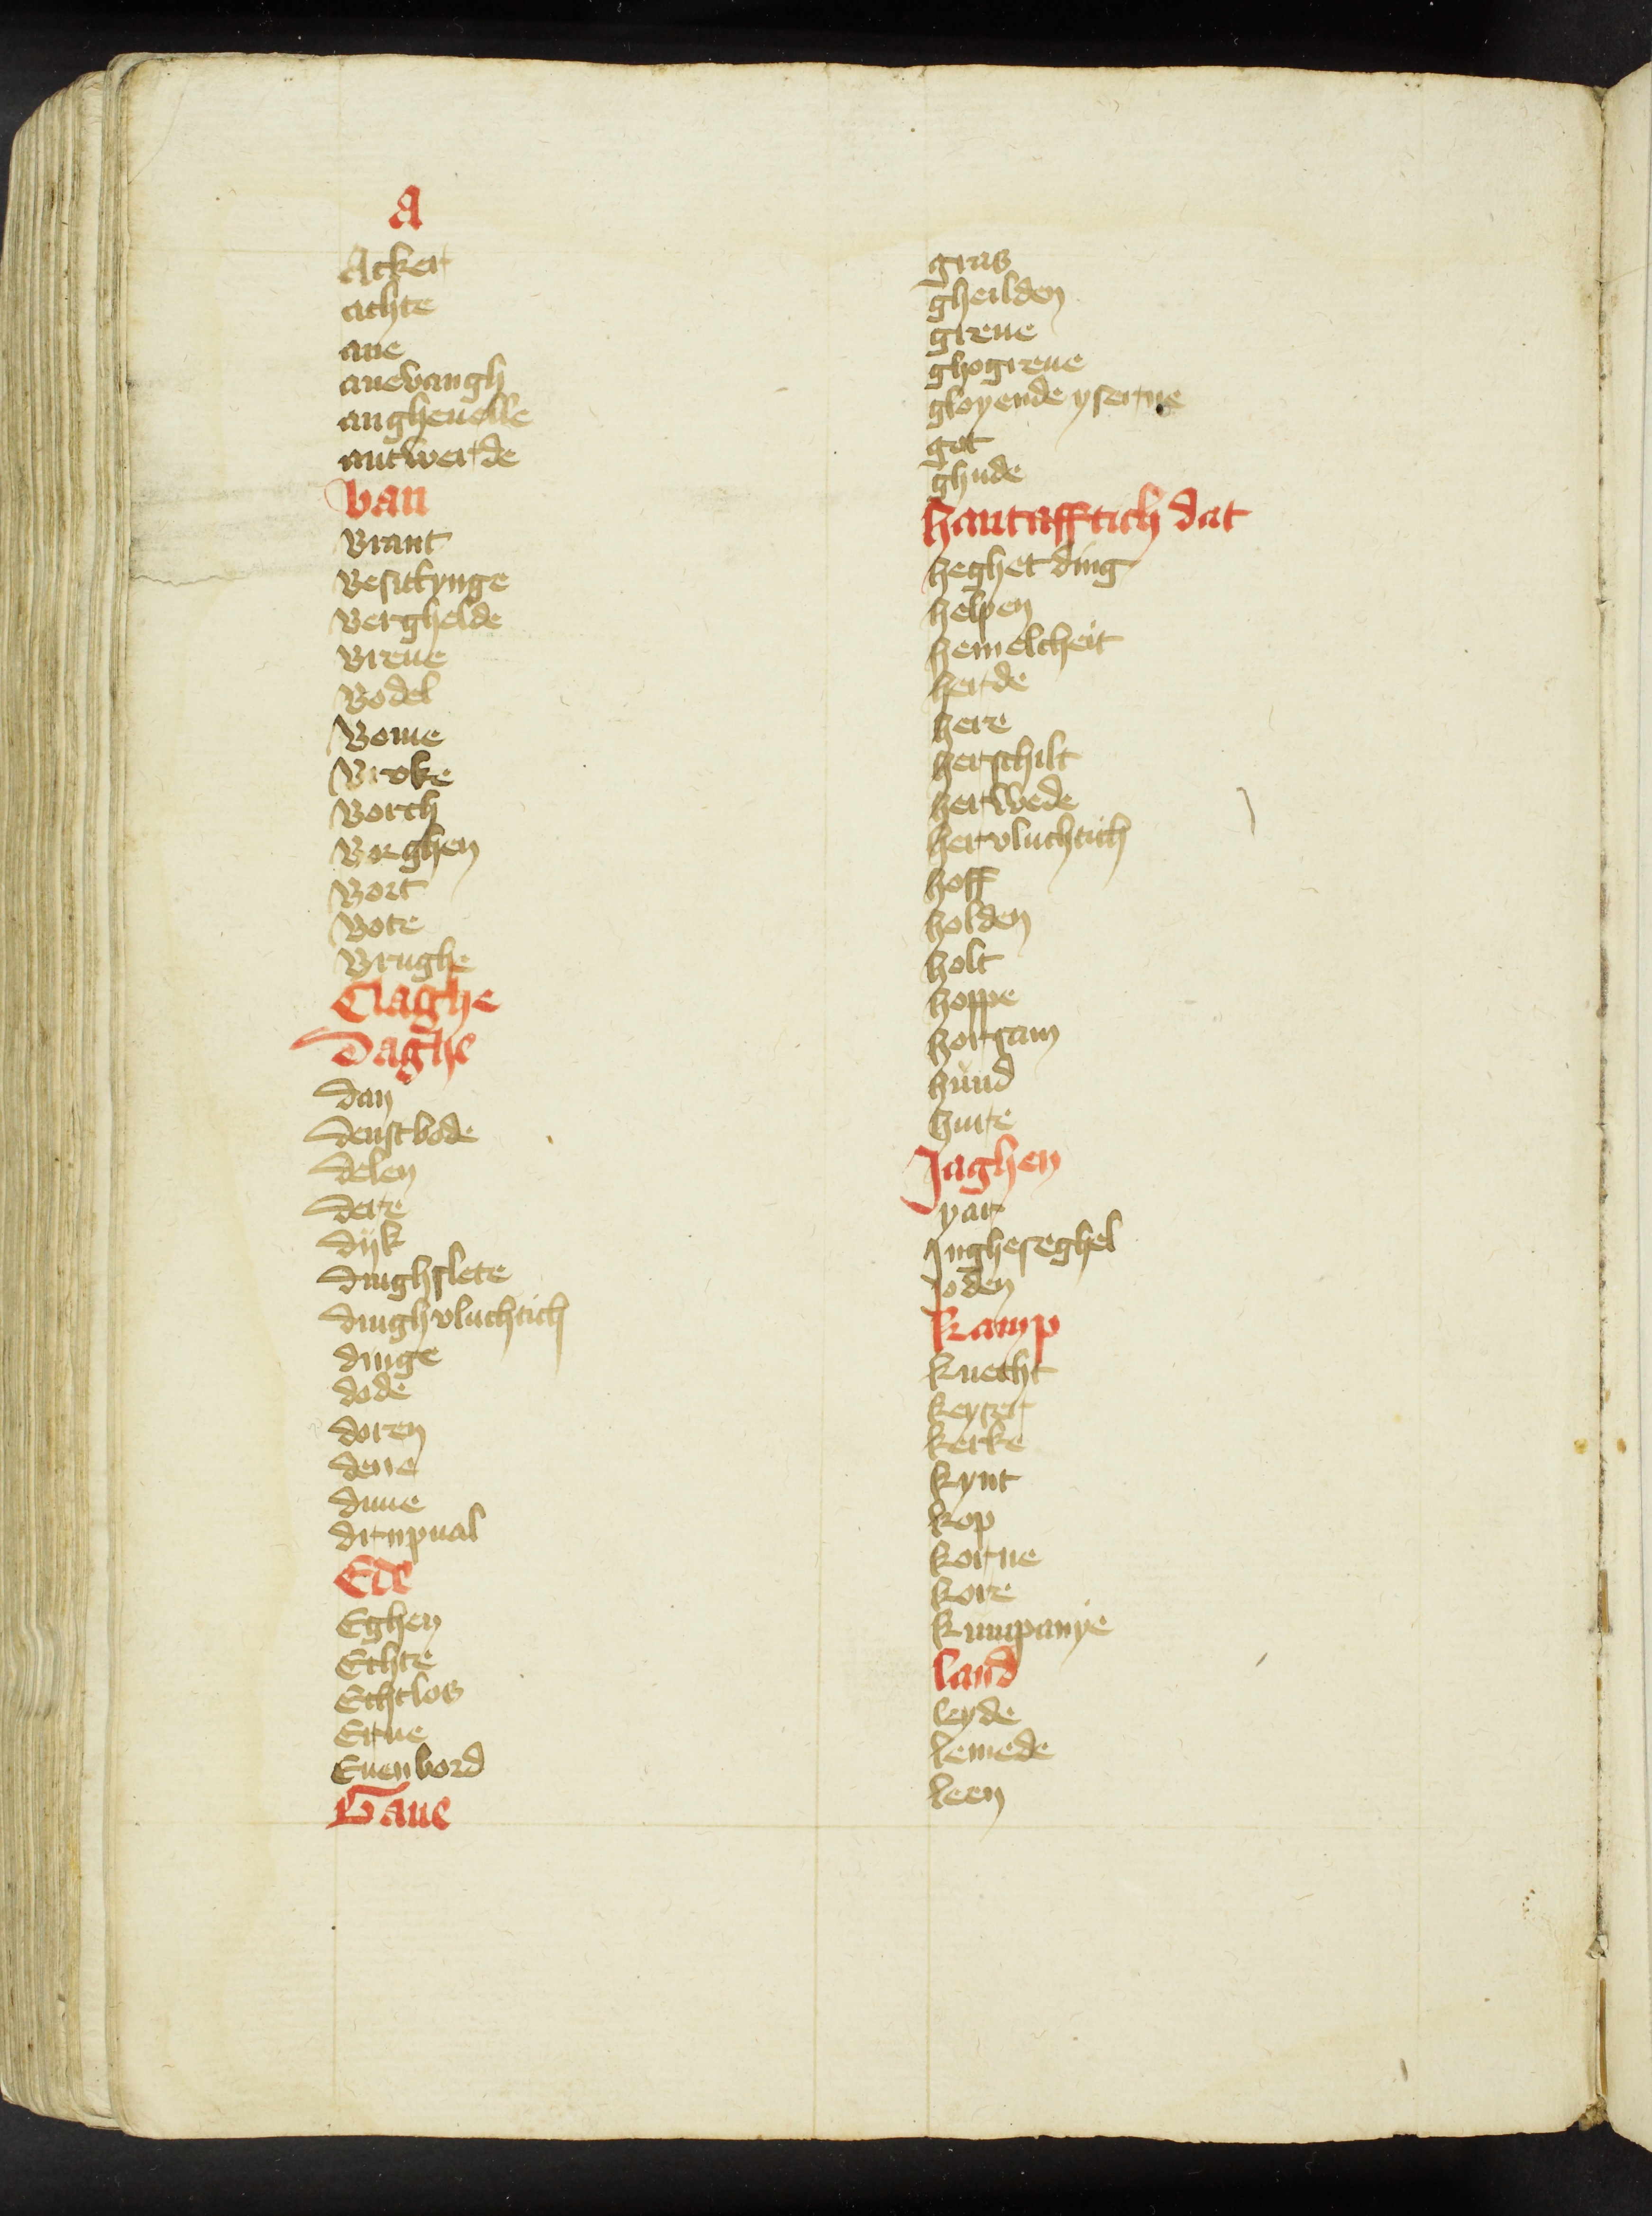 A
Acker
achte
ane
anevangh
angheuelle
antwerde
ban
Brant
Besittynge
Berghelde
Breue
Bodel
Bome
Broke
Borch
Borghen
Bort
Bote
Brughe
Claghe
Daghe
dan
denstbode
delen
dere
dijk
dinghslete
dinghvluchtich
dinge
dode
doren
deue
duue
Ede
Eghen
Echte
Echtlos
Erue
Euenbord
Gaue
gras
gheilden
greue
ghogreue
gloyende yserne
got
ghude
hantafftich dat
heghet ding
helpen
hemelcheit
herde
here
herschilt
herwede
hervluchtich
hoff
holden
holt
hoppe
horsam
hund
hure
Jaghen
yar
Jngheseghel
Joden
Kamp
knecht
keyser
kerke
kynt
kop
korne
kore
kumpanye
land
leyde
lemede
leen